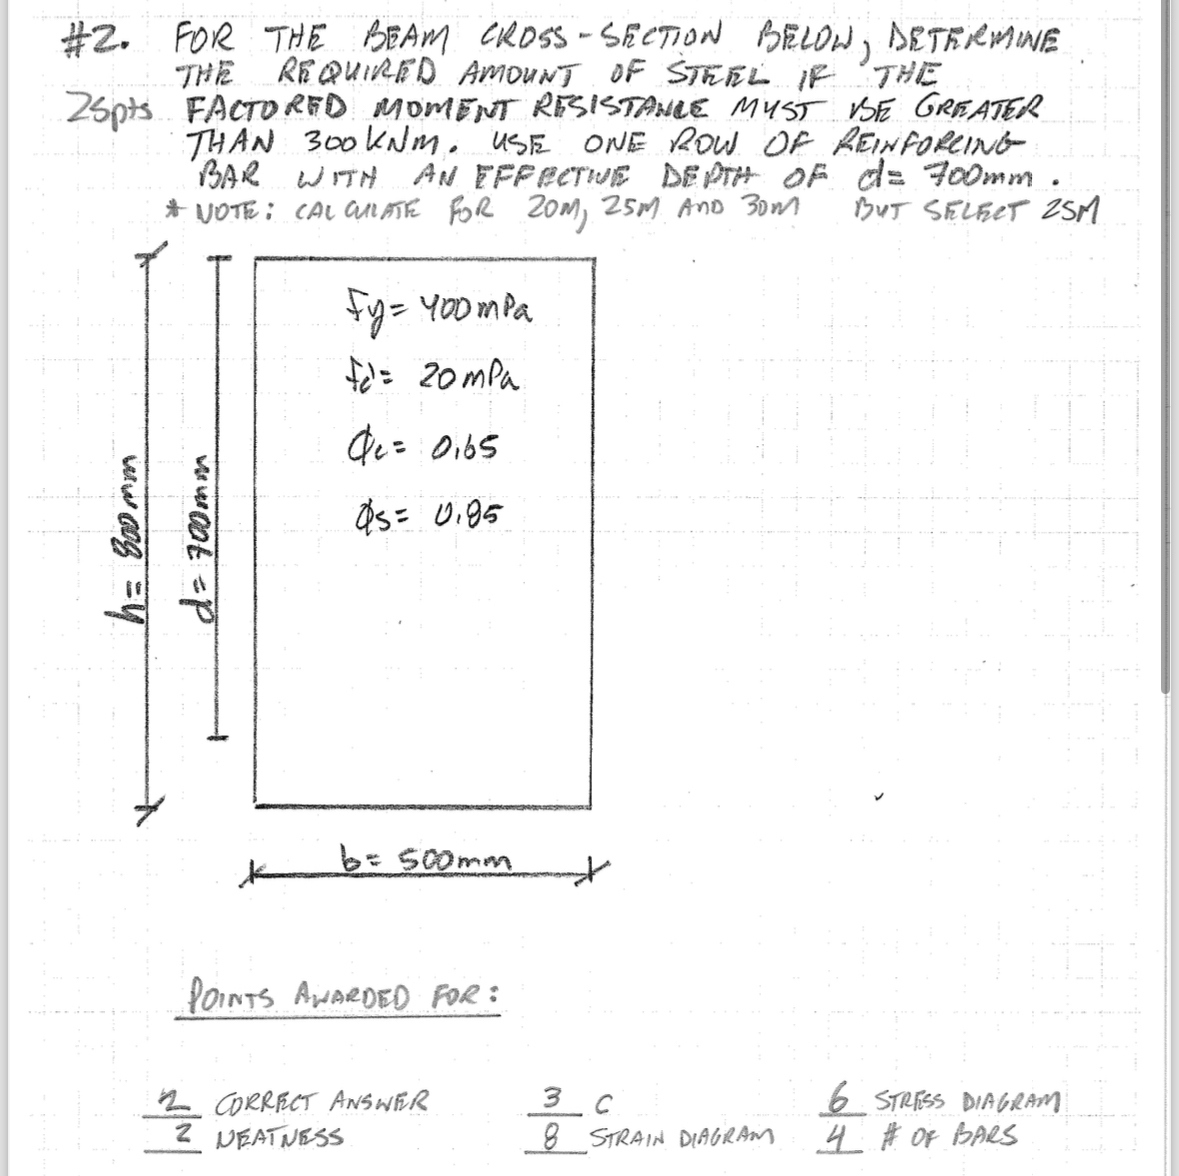 #2. FOR THE BEAM CROSS-SECTION BELOW, DETERMINE
THE REQUIRED AMOUNT OF STEEL IF THE
25pts FACTORED MOMENT RESISTANCE MUST BE GREATER
THAN 300 kNm. USE ONE ROW OF REINFORCING
BAR WITH AN EFFECTIVE DEPTH OF d= 700mm.
* NOTE: CALCULATE FOR 20M, 25M AND 30M BUT SELECT 25M
fy= 400mPa
fc'= 20mPa
ϕc= 0.65
ϕs= 0.85
h= 800mm
d= 700mm
b= 500mm
POINTS AWARDED FOR:
2 CORRECT ANSWER 3 C 6 STRESS DIAGRAM
2 NEATNESS 8 STRAIN DIAGRAM 4 # OF BARS